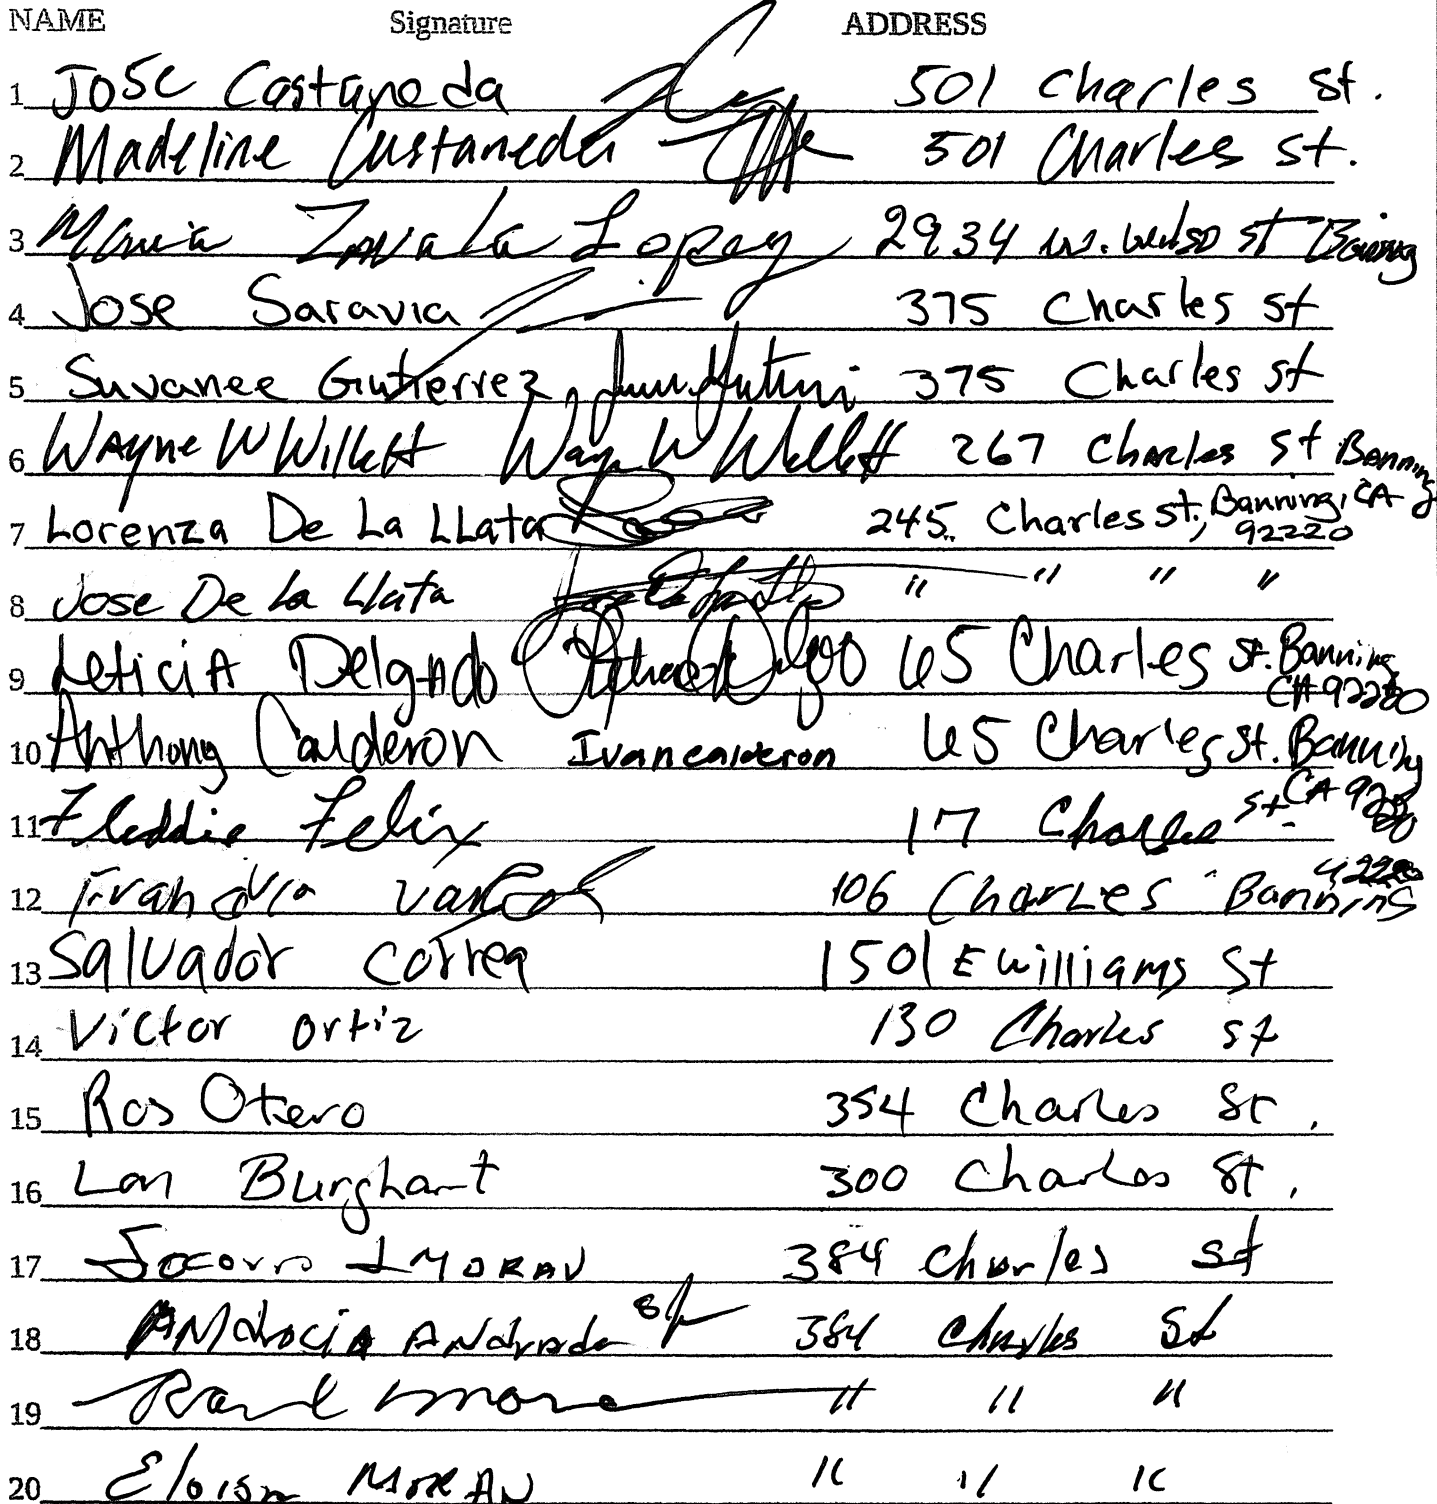 NAME Signature ADDRESS
1 Jose Castaneda 501 Charles St.
2 Madeline Castaneda 501 Charles St.
3 Maria Zavala Lopez 2934 W. St Banning
4 Jose Saravia 375 Charles St
5 Suvanee Gutierrez 375 Charles St
6 Wayne W Willett Wayne W Willett 267 Charles St Banning
7 Lorenza De La LLata 245 Charles St., Banning, CA 92220
8 Jose De La Llata " " " "
9 Leticia Delgado 65 Charles St. Banning CA 92220
10 Anthony Calderon Ivan calderon 65 Charles St. Banning CA 92220
11 Freddie Felix 17 Charles St.
12 106 Charles Banning 92220
13 Salvador Correa 1501 E williams St
14 Victor ortiz 130 Charles st
15 Ros Otero 354 Charles St.
16 Lon Burghart 300 Charles St.
17 Socorro J MORAN 384 Charles St
18 Andrade 384 Charles St
19 Raul " " "
20 Eloisa MORAN " " "